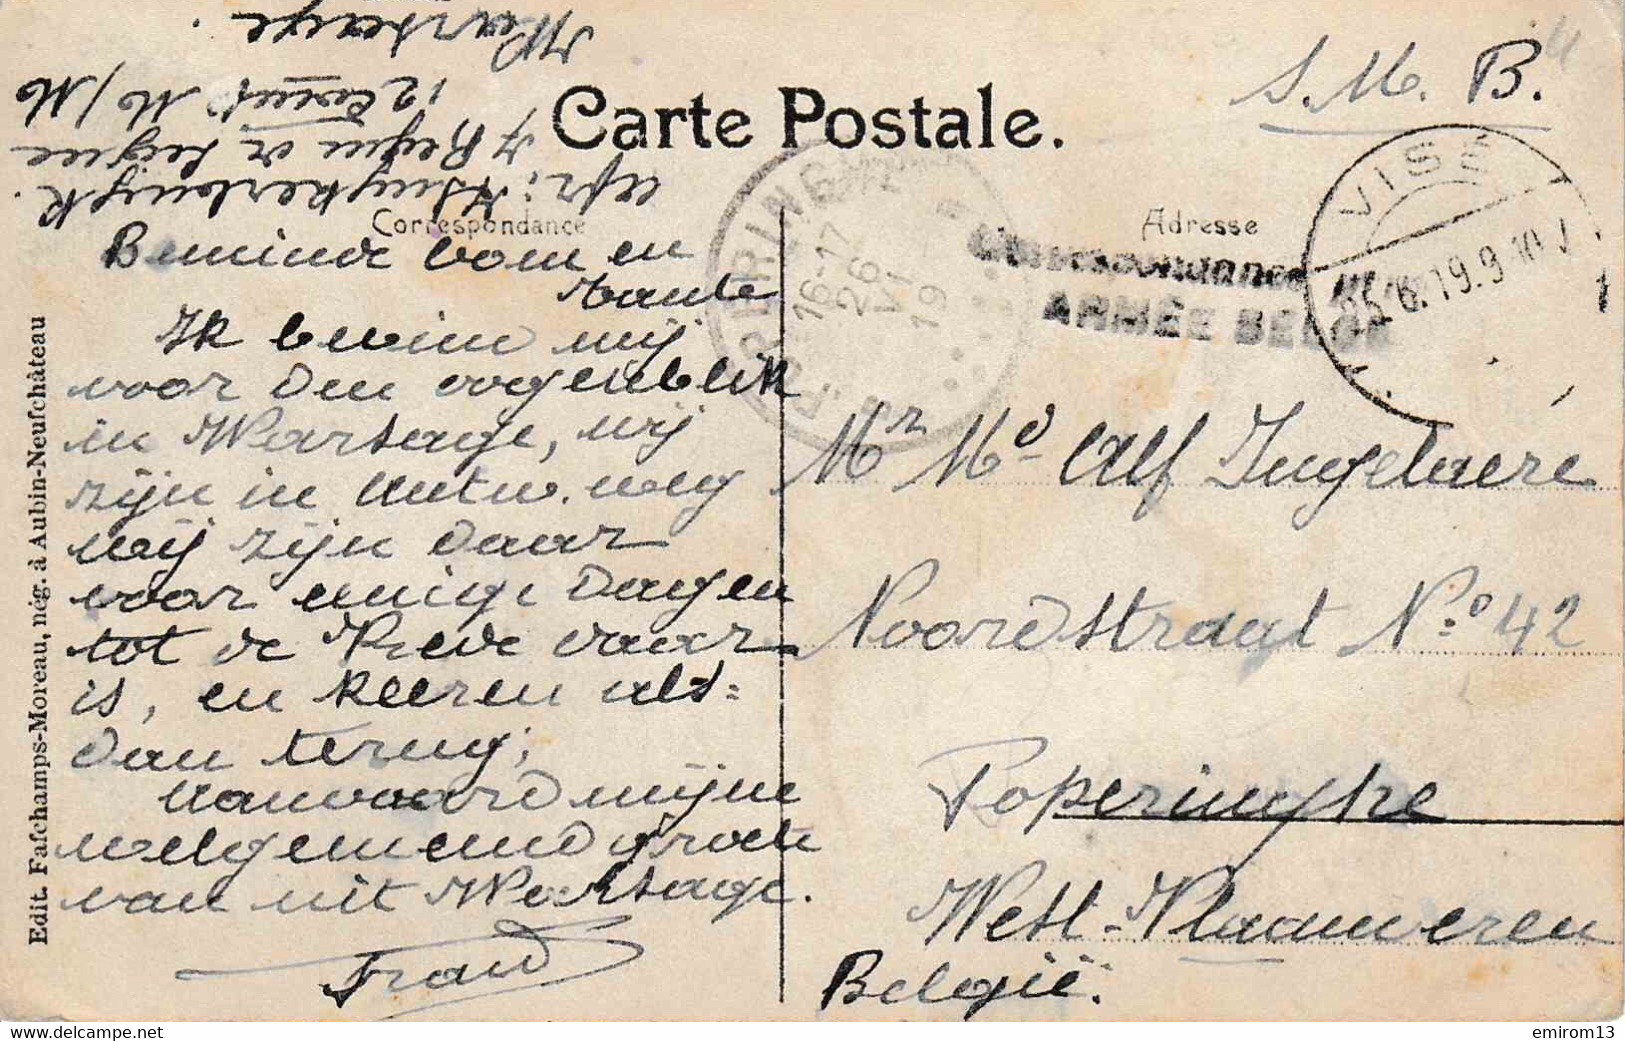 S. M. B.
Carte Postale.
Correspondance
Adresse
Warsage.
12 Comp M/M
7 Regim de Ligne
Afz:
Beminde Oom en
Tante
Ik bevind mij
voor den oogenblik
in Warsage, wij
zijn in Antw. weg
wij zijn daar
voor eenige dagen
tot de Vrede daar
is, en keeren als=
dan terug;
Aanvaard mijne
welgemeend groete
van uit Warsage.
Frans
Mr Md Alf Ingelaere
Noordstraat No 42
Poperinghe
West-Vlaanderen
België.
VISÉ
25.6.19.9-10
POPERINGHE
16-17
26
VI
19
ARMÉE BELGE
Edit. Fafchamps-Moreau, nég. à Aubin-Neufchâteau
www.delcampe.net
emirom13